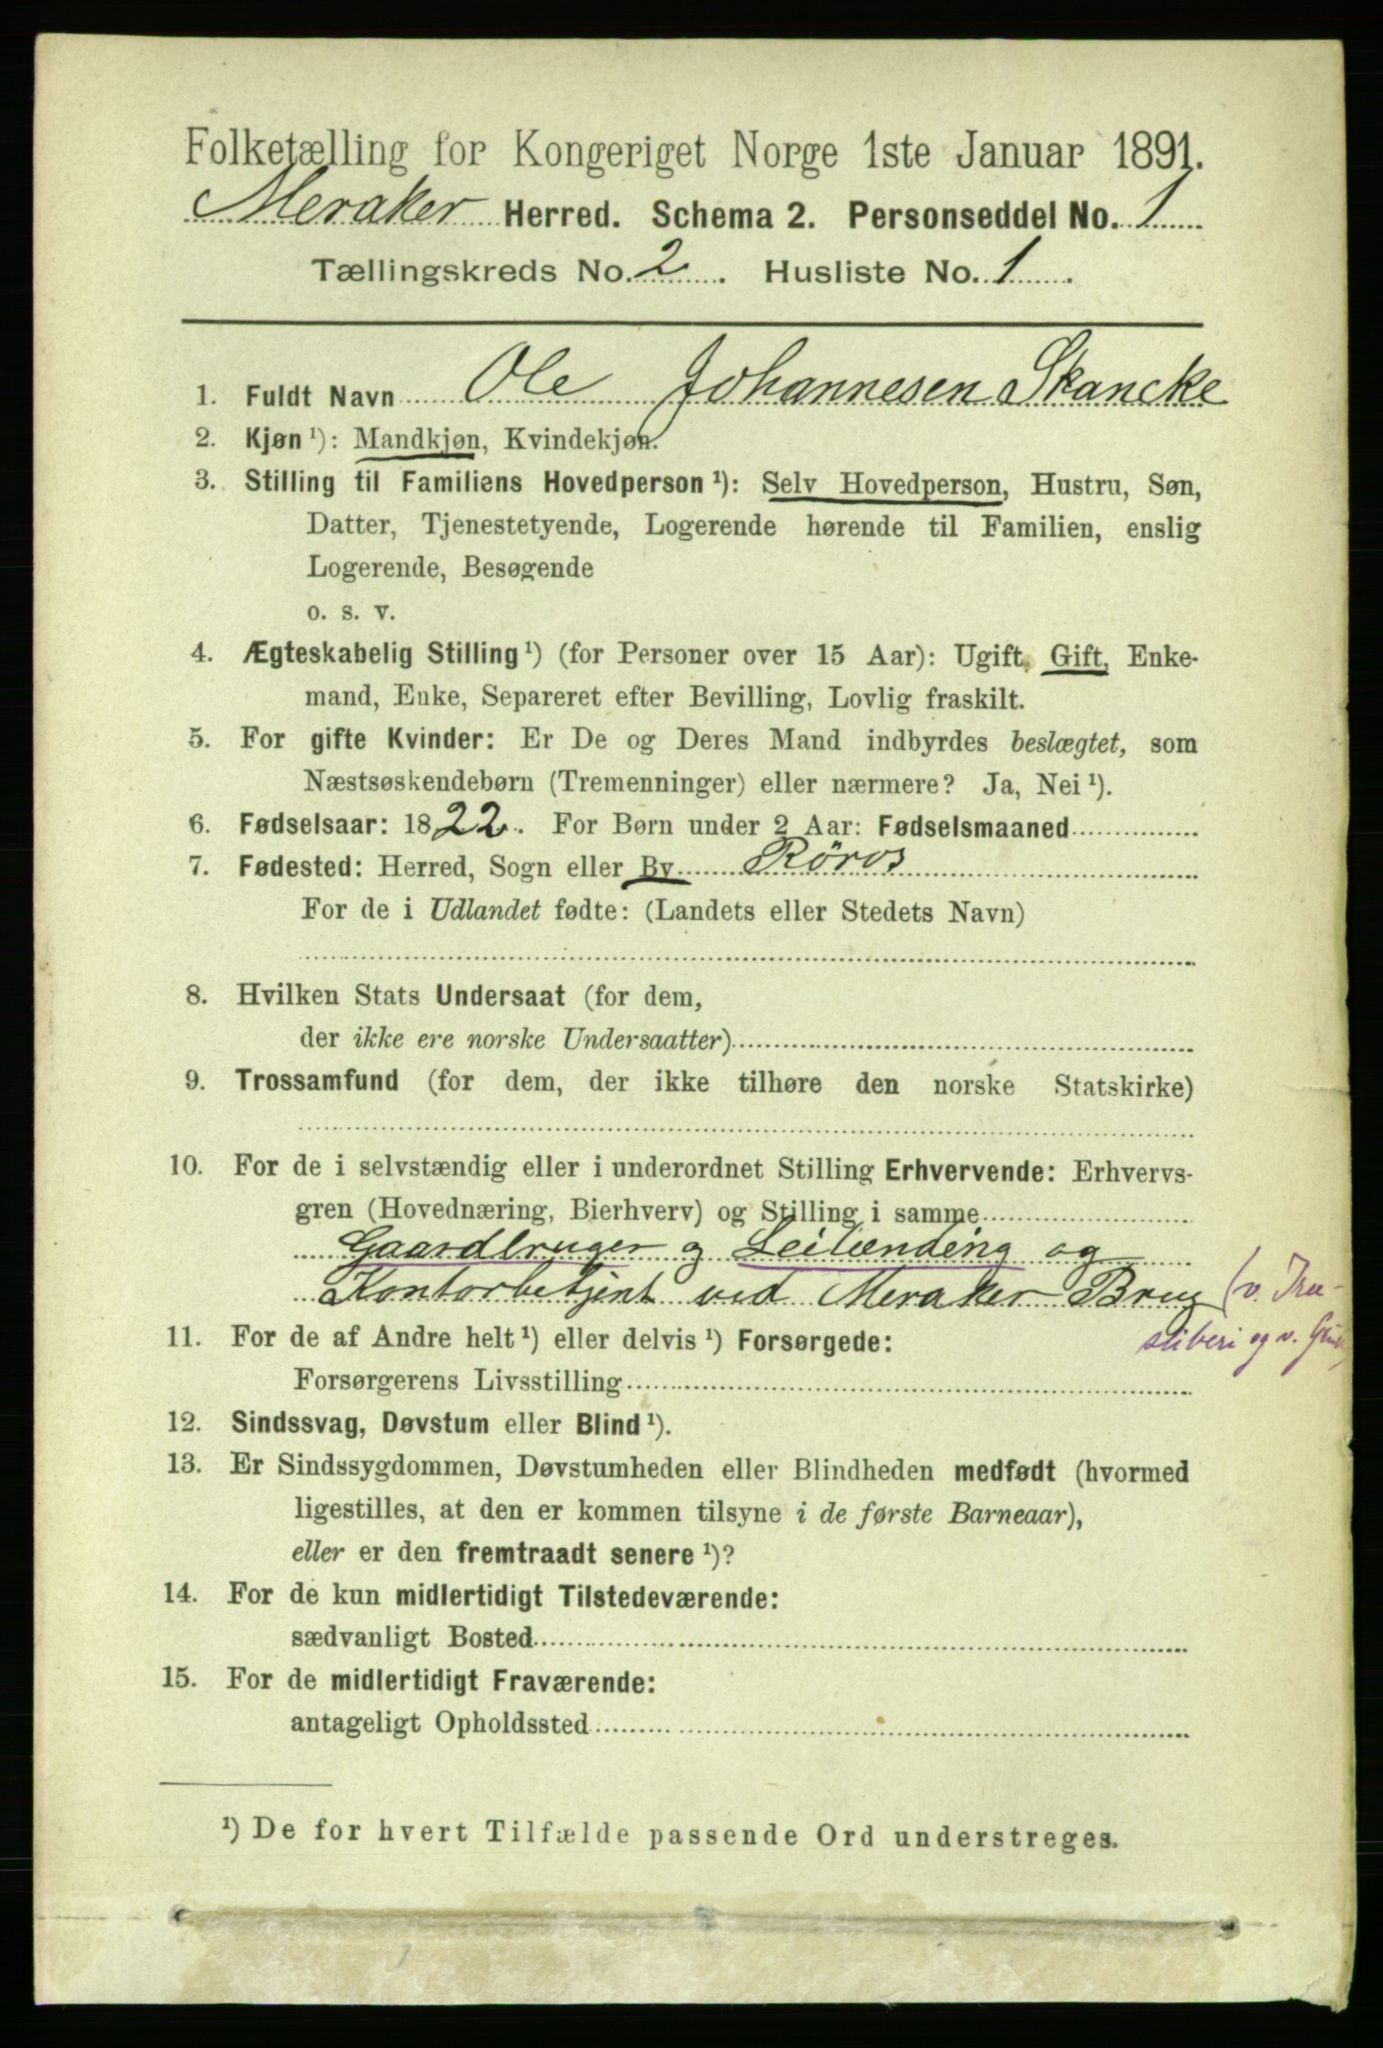 Folketælling for Kongeriget Norge 1ste Januar 1891.
Meraker Herred. Schema 2. Personseddel No. 1
Tællingskreds No. 2. Husliste No. 1.
1. Fuldt Navn Ole Johannesen Skancke
2. Kjøn ¹): Mandkjøn, Kvindekjøn.
3. Stilling til Familiens Hovedperson ¹): Selv Hovedperson, Hustru, Søn,
Datter, Tjenestetyende, Logerende hørende til Familien, enslig
Logerende, Besøgende
o. s. v.
4. Ægteskabelig Stilling ¹) (for Personer over 15 Aar): Ugift, Gift, Enke-
mand, Enke, Separeret efter Bevilling, Lovlig fraskilt.
5. For gifte Kvinder: Er De og Deres Mand indbyrdes beslægtet, som
Næstsøskendebørn (Tremenninger) eller nærmere? Ja, Nei ¹).
6. Fødselsaar: 1822. For Børn under 2 Aar: Fødselsmaaned
7. Fødested: Herred, Sogn eller By Röros
For de i Udlandet fødte: (Landets eller Stedets Navn)
8. Hvilken Stats Undersaat (for dem,
der ikke ere norske Undersaatter)
9. Trossamfund (for dem, der ikke tilhøre den norske Statskirke)
10. For de i selvstændig eller i underordnet Stilling Erhvervende: Erhvervs-
gren (Hovednæring, Bierhverv) og Stilling i samme
Gaardbruger og Leilænding og
Kontorbetjent ved Meraker Brug (v. Træ-
sliberi og v.
11. For de af Andre helt ¹) eller delvis ¹) Forsørgede:
Forsørgerens Livsstilling
12. Sindssvag, Døvstum eller Blind ¹).
13. Er Sindssygdommen, Døvstumheden eller Blindheden medfødt (hvormed
ligestilles, at den er kommen tilsyne i de første Barneaar),
eller er den fremtraadt senere ¹)?
14. For de kun midlertidigt Tilstedeværende:
sædvanligt Bosted
15. For de midlertidigt Fraværende:
antageligt Opholdssted
¹) De for hvert Tilfælde passende Ord understreges.